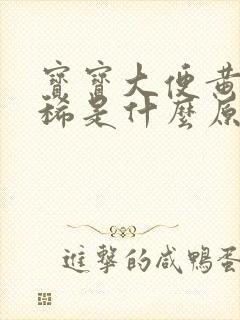 寶寶大便黃
稀是什麼原
進擊的咸鴨蛋